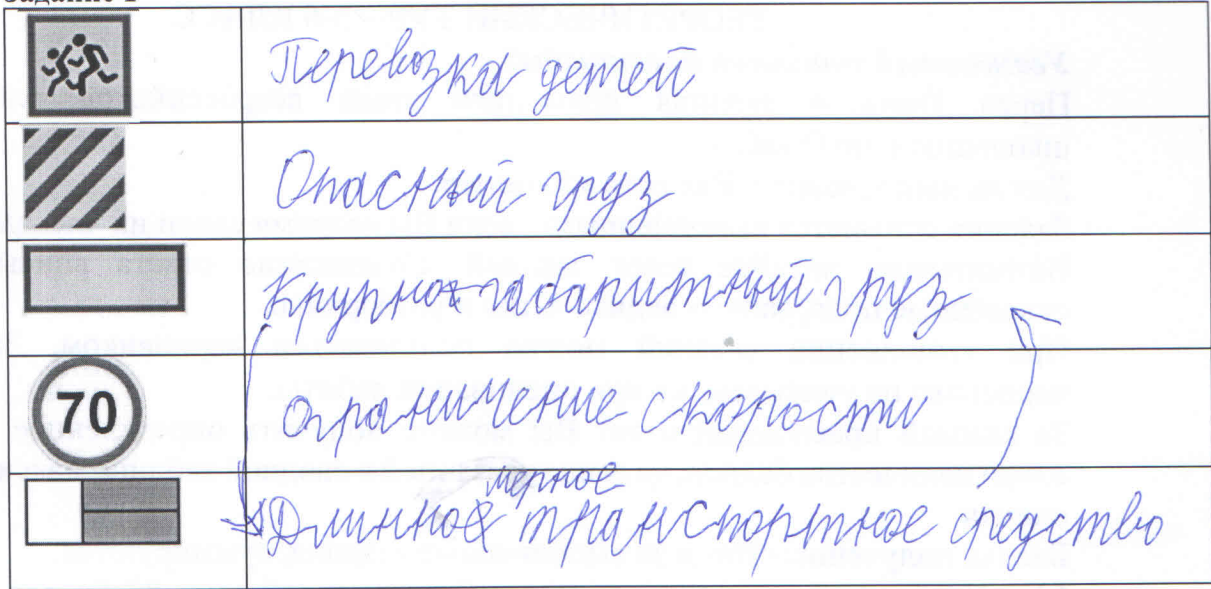 Перевозка детей
Опасный груз
Крупногабаритный груз
70
ограничение скорости
мерное
Длинное транспортное средство